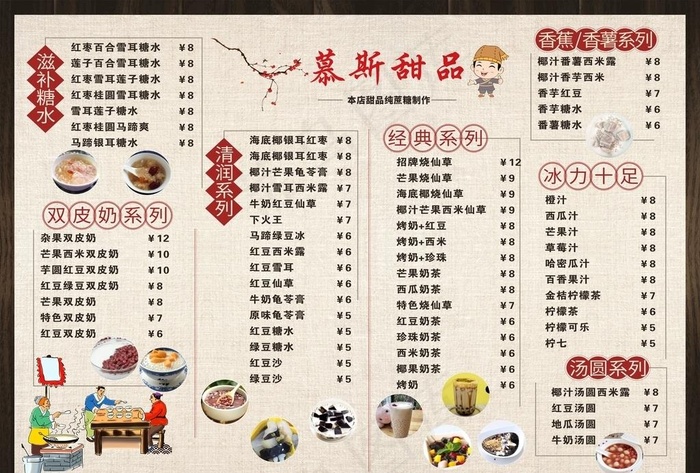 慕斯甜品
本店甜品纯蔗糖制作
滋补糖水
红枣百合雪耳糖水 ￥8
莲子百合雪耳糖水 ￥8
红枣雪耳莲子糖水 ￥8
红枣桂圆雪耳糖水 ￥8
雪耳莲子糖水 ￥8
红枣桂圆马蹄爽 ￥8
马蹄银耳糖水 ￥8
双皮奶系列
杂果双皮奶 ￥12
芒果西米双皮奶 ￥10
芋圆红豆双皮奶 ￥10
红豆绿豆双皮奶 ￥8
芒果双皮奶 ￥8
特色双皮奶 ￥7
红豆双皮奶 ￥6
清润系列
海底椰银耳红枣 ￥8
海底椰银耳红枣 ￥8
椰汁芒果龟苓膏 ￥8
椰汁雪耳西米露 ￥8
牛奶红豆仙草 ￥7
下火王 ￥7
马蹄绿豆冰 ￥6
红豆西米露 ￥6
红豆雪耳 ￥6
红豆仙草 ￥6
牛奶龟苓膏 ￥6
原味龟苓膏 ￥5
红豆糖水 ￥5
绿豆糖水 ￥5
红豆沙 ￥5
绿豆沙 ￥5
经典系列
招牌烧仙草 ￥12
芒果烧仙草 ￥9
海底椰烧仙草 ￥9
椰汁芒果西米仙草 ￥9
烤奶+红豆 ￥8
烤奶+西米 ￥8
烤奶+珍珠 ￥8
芒果奶茶 ￥8
西瓜奶茶 ￥8
特色烧仙草 ￥7
红豆奶茶 ￥7
珍珠奶茶 ￥7
西米奶茶 ￥7
椰果奶茶 ￥7
烤奶 ￥6
香蕉/香薯系列
椰汁番薯西米露 ￥8
椰汁香芋西米 ￥8
香芋红豆 ￥7
香芋糖水 ￥6
番薯糖水 ￥6
冰力十足
橙汁 ￥8
西瓜汁 ￥8
芒果汁 ￥8
草莓汁 ￥8
哈密瓜汁 ￥8
百香果汁 ￥8
金桔柠檬茶 ￥7
柠檬茶 ￥6
柠檬可乐 ￥5
柠七 ￥5
汤圆系列
椰汁汤圆西米露 ￥8
红豆汤圆 ￥7
地瓜汤圆 ￥7
牛奶汤圆 ￥7